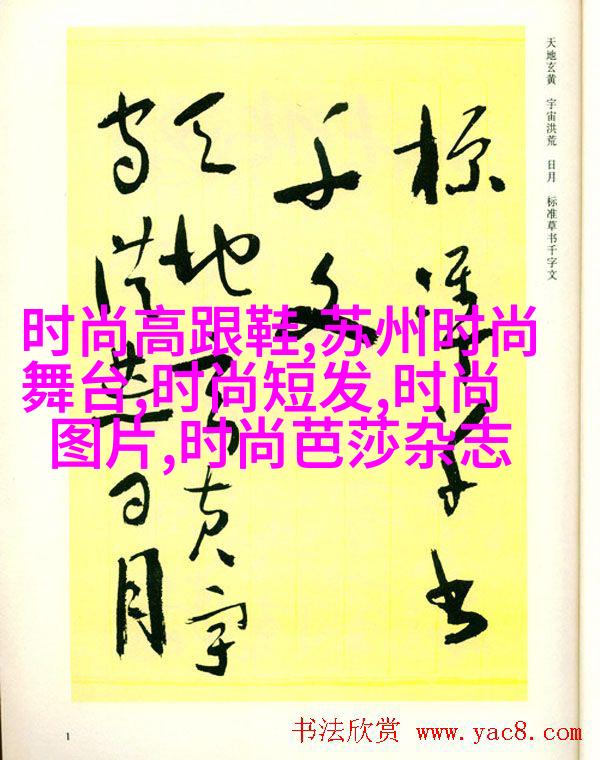 天地玄黄 宇宙洪荒 日月 标准草书千字文
标准草书
千文
天地玄黄宇
宙洪荒日月
时尚高跟鞋,苏州时尚
舞台,时尚短发,时尚
图片,时尚芭莎杂志
1
书法欣赏 www.yac8.com